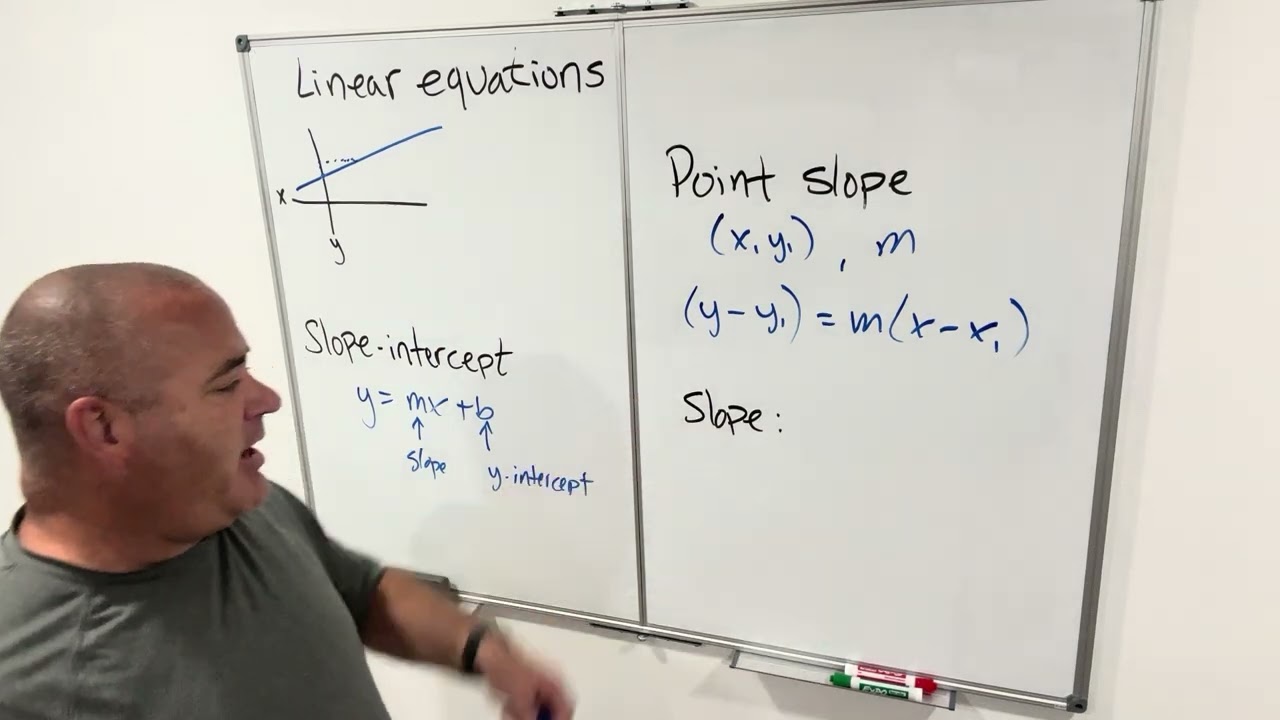 Linear equations
x
y
Slope-intercept
y = mx + b
↑ ↑
slope
y-intercept
Point slope
(x₁ y₁) , m
(y - y₁) = m(x - x₁)
Slope:
EXPO